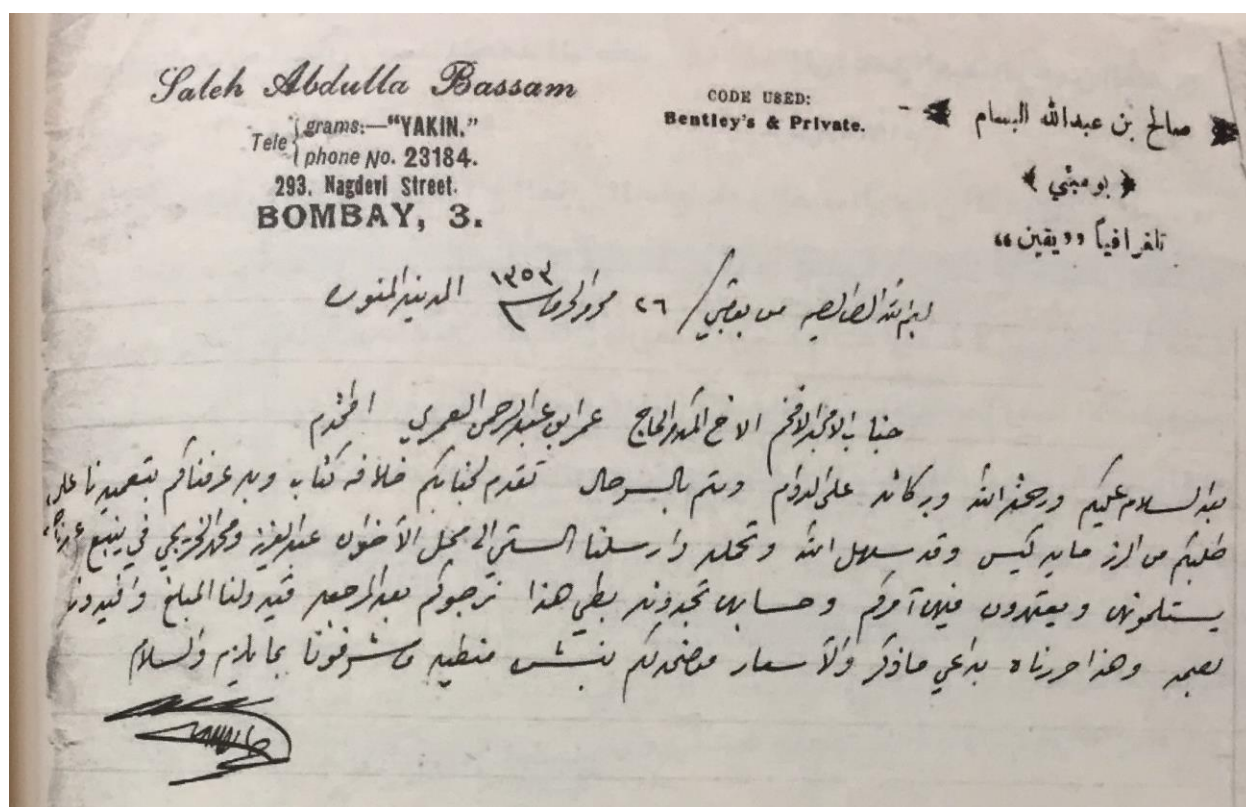 Saleh Abdulla Bassam
Tele grams:—"YAKIN."
phone No. 23184.
293, Nagdevi Street.
BOMBAY, 3.
CODE USED:
Bentley's & Private.
صالح بن عبدالله البسام
بومبئي
تلغرافياً "يقين"
من بمبي / ٢٦ محرم الحرام ١٣٥٣ المدينة المنورة
جناب الامجد الافخم الاخ المكرم الحاج عمر بن عبدالرحمن العمري المحترم
بعد السلام عليكم ورحمة الله وبركاته على الدوام ودمتم بالسرحال تقدم لجنابكم خلافه كتاب وبه عرفناكم بتعميدنا على
طلبكم من الرز مايه كيس وقد سهل الله وتحملة وارسلنا الستمي الى محل الأخوان عبدالعزيز ومحمد الخريجي في ينبع
يستلمونها ويعتمدون فيها أمركم وحسابها تجدونه بطي هذا نرجوكم بعد المرجعه قيدولنا المبلغ وافيدونا
وهذا حررناه بداعي ماذكر والأسعار موضحه لكم شرفونا بما يلزم والسلام